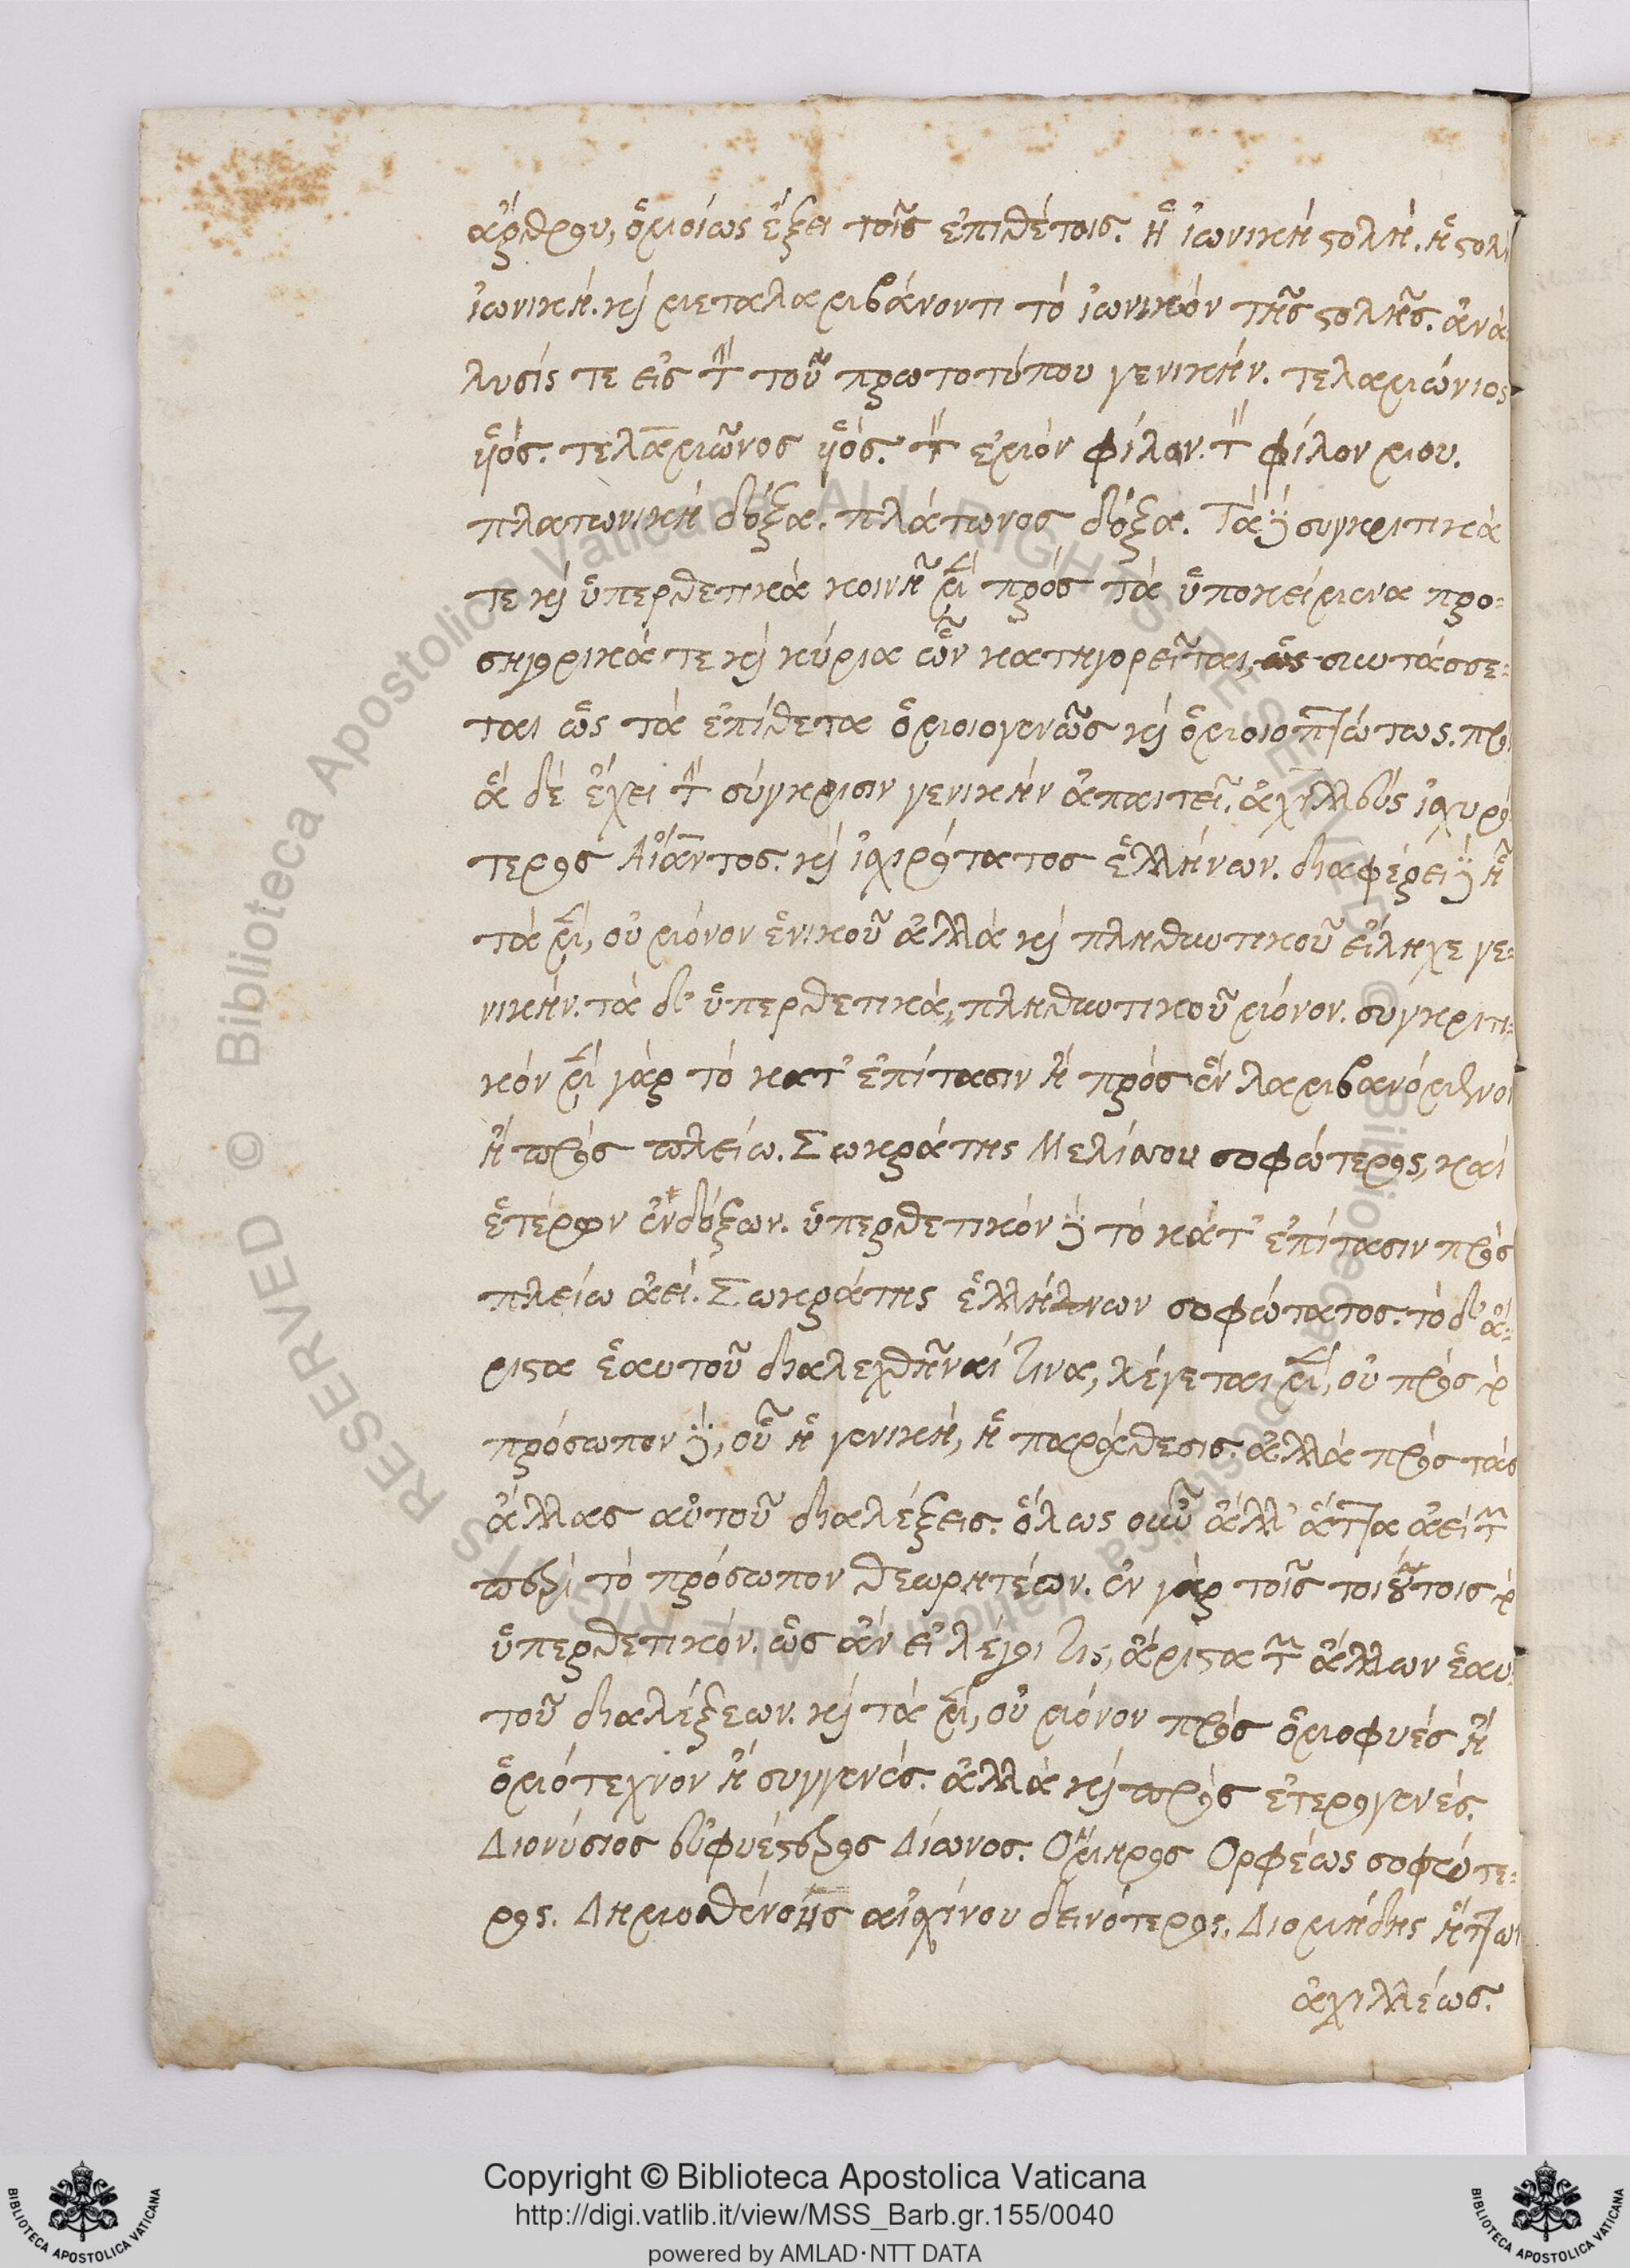 ἄρθρου, ὁμοίως ἕξει τοῖς ἐπιθέτοις. ἡ ἰωνικὴ στολή. ἡ στολὴ
ἰωνική. καὶ μεταλαμβάνοντι τὸ ἰωνικὸν τῆς στολῆς. ἀνά-
λυσίς τε εἰς τὴν τοῦ πρωτοτύπου γενικήν. τελαμώνιος
υἱός. τελαμῶνος υἱός. τὸν ἐμὸν φίλον. τὸν φίλον μου.
πλατωνικὴ δόξα. πλάτωνος δόξα. Τὰ δὲ συγκριτικά
τε καὶ ὑπερθετικὰ κοινῇ μὲν πρὸς τὰ ὑποκείμενα προ-
σηγορικά τε καὶ κύρια ὧν κατηγορεῖται, συντάσσε-
ται ὡς τὰ ἐπίθετα ὁμοιογενῶς καὶ ὁμοιοπτώτως. πρὸς
ἃ δὲ ἔχει τὴν σύγκρισιν γενικὴν ἀπαιτεῖ. ἀχιλλεὺς ἰσχυρό
τερος Αἴαντος. καὶ ἰσχυρότατος ἑλλήνων. διαφέρει δὲ ᾗ
τὰ μὲν, οὐ μόνον ἑνικοῦ ἀλλὰ καὶ πληθυντικοῦ εἴληχε γε-
νικήν. τὰ δ' ὑπερθετικὰ, πληθυντικοῦ μόνον. συγκριτι-
κὸν μὲν γὰρ τὸ κατ' ἐπίτασιν ἢ πρὸς ἓν λαμβανόμενον
ἢ πρὸς πλείω. Σωκράτης Μελίσσου σοφώτερος, καὶ
ἑτέρων ἐνδόξων. ὑπερθετικὸν δὲ τὸ κατ' ἐπίτασιν πρὸς
πλείω ἀεί. Σωκράτης ἑλλήνων σοφώτατος. τὸ δ' ἄ-
ριστα ἑαυτοῦ διαλεχθῆναί τινα, λέγεται μὲν, οὐ πρὸς
πρόσωπον δὲ, οὗ ἡ γενικὴ, ἡ παράθεσις. ἀλλὰ πρὸς τὰς
ἄλλας αὐτοῦ διαλέξεις. ὅλως οὖν ἀλλ' ἄττα ἀεὶ τῶν
περὶ τὸ πρόσωπον θεωρητέον. ἐν γὰρ τοῖς τοιούτοις
ὑπερθετικόν. ὡς ἂν εἰ λέγοι τις, ἄριστα τῶν ἄλλων ἑαυ
τοῦ διαλέξεων. καὶ τὰ μὲν, οὐ μόνον πρὸς ὁμοφυὲς ἢ
ὁμότεχνον ἢ συγγενές. ἀλλὰ καὶ πρὸς ἑτερογενές.
Διονύσιος εὐφυέστερος Δίωνος. Ὅμηρος Ορφέως σοφώτε-
ρος. Δημοσθένης αἰσχίνου δεινότερος. Διομήδης ἥττων
ἀχιλλέως.
Copyright © Biblioteca Apostolica Vaticana
http://digi.vatlib.it/view/MSS_Barb.gr.155/0040
powered by AMLAD·NTT DATA